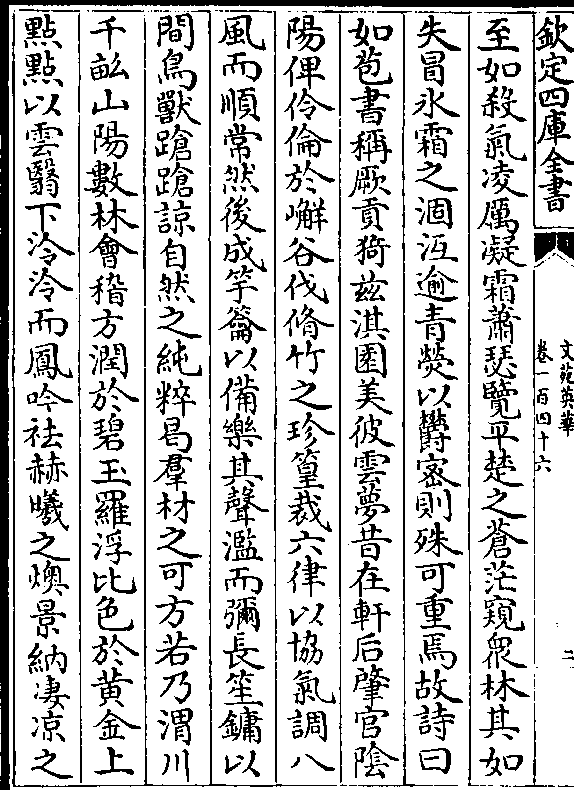 欽定四庫全書
文苑英華
卷一百四十六
二
至如殺氣凌厲凝霜蕭瑟覽平楚之蒼茫窺眾林其如
失冒氷霜之涸沍逾青熒以欝宻則殊可重焉故詩曰
如苞書稱厥貢猗兹淇園美彼雲夢昔在軒后肇官陰
陽俾伶倫於嶰谷伐脩竹之珍篁裁六律以協氣調八
風而順常然後成竽籥以備樂其聲濫而彌長笙鏞以
間鳥獸蹌蹌諒自然之純粹曷羣材之可方若乃渭川
千畝山陽數林會稽方潤於碧玉羅浮比色於黄金上
點點以雲翳下泠泠而鳳吟祛赫曦之燠景納凄凉之